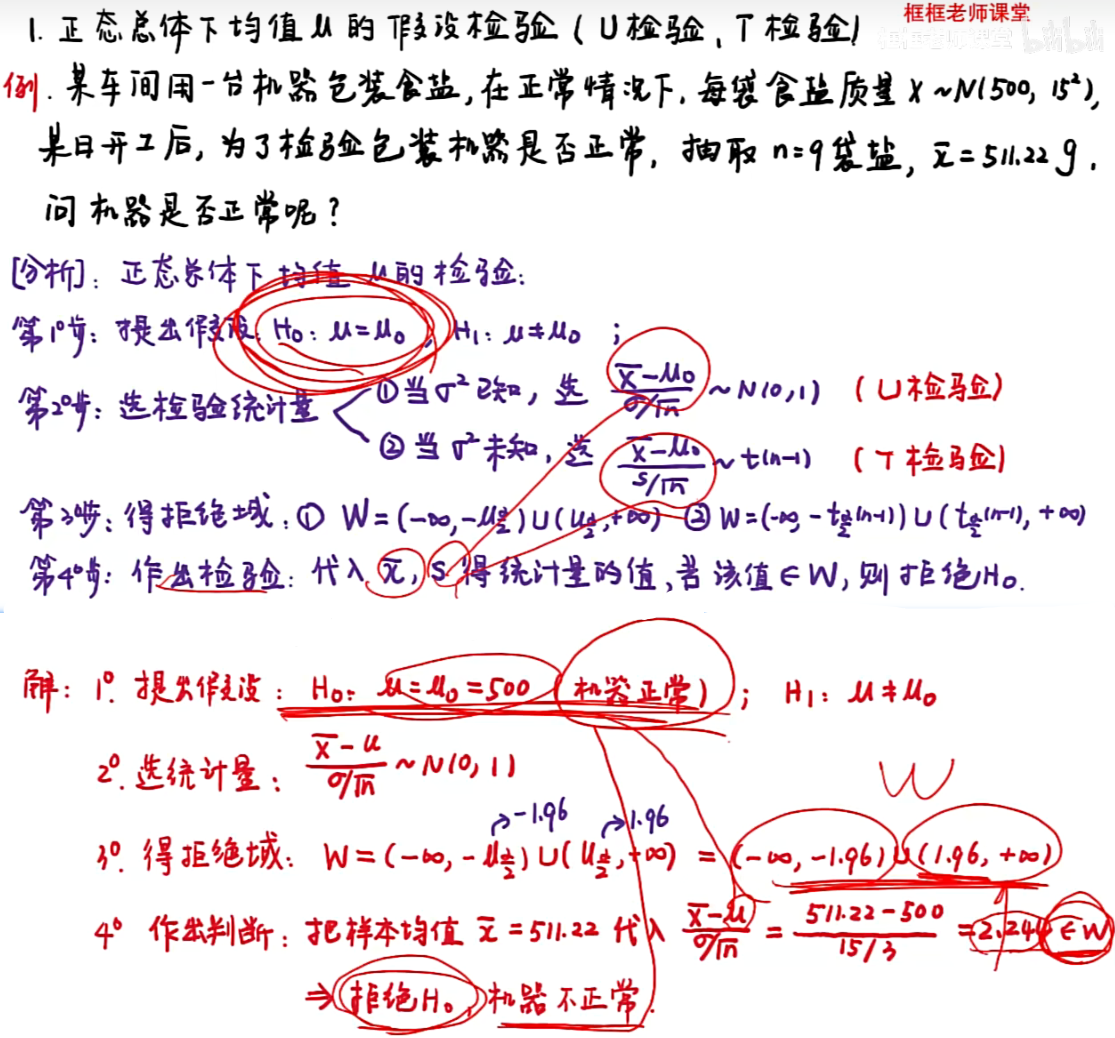 框框老师课堂
1. 正态总体下均值 μ 的假设检验 (U检验, T检验)
例. 某车间用一台机器包装食盐, 在正常情况下, 每袋食盐质量 X~N(500, 15²),
某日开工后, 为了检验包装机器是否正常, 抽取 n=9袋盐, x̄=511.22 g.
问机器是否正常呢?
[分析]: 正态总体下均值 μ的检验:
第1°步: 提出假设: H₀: μ=μ₀, H₁: μ≠μ₀ ;
第2°步: 选检验统计量 ①当σ²已知, 选 (x̄-μ₀)/(σ/√n) ~N(0,1) (U检验)
②当σ²未知, 选 (x̄-μ₀)/(s/√n) ~t(n-1) (T检验)
第3°步: 得拒绝域: ① W=(-∞, -μ_{α/2})∪(μ_{α/2}, +∞) ② W=(-∞, -t_{α/2}(n-1))∪(t_{α/2}(n-1), +∞)
第4°步: 作出检验: 代入 x̄, s 得统计量的值, 若该值∈W, 则拒绝H₀.
解: 1°. 提出假设: H₀: μ=μ₀=500 (机器正常) ; H₁: μ≠μ₀
2°. 选统计量: (x̄-μ)/(σ/√n) ~N(0,1)
W
-1.96 1.96
3°. 得拒绝域: W=(-∞, -μ_{α/2})∪(μ_{α/2}, +∞) = (-∞, -1.96)∪(1.96, +∞)
4° 作出判断: 把样本均值 x̄=511.22 代入 (x̄-μ)/(σ/√n) = (511.22-500)/(15/3) =2.244∈W
⇒ 拒绝H₀, 机器不正常.